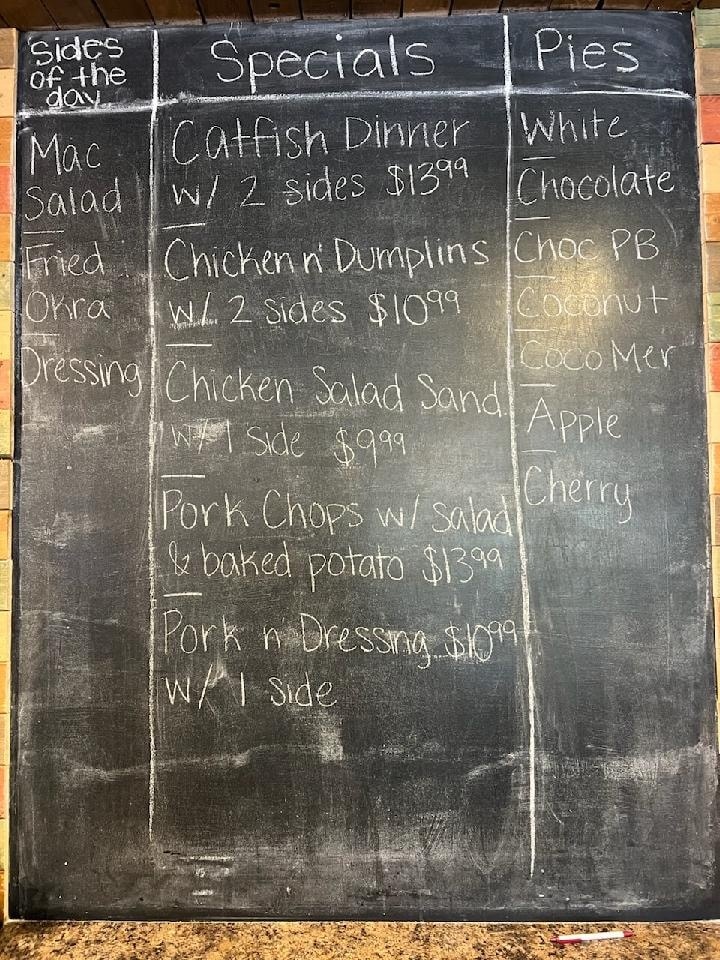 Sides
of the
day
Mac
Salad
Fried
Okra
Dressing
Specials
Catfish Dinner
w/ 2 sides $13.99
Chicken n' Dumplins
w/ 2 sides $10.99
Chicken Salad Sand.
w/ 1 side $9.99
Pork Chops w/ salad
& baked potato $13.99
Pork n' Dressing $10.99
w/ 1 side
Pies
White
Chocolate
Choc PB
Coconut
Coco Mer
Apple
Cherry